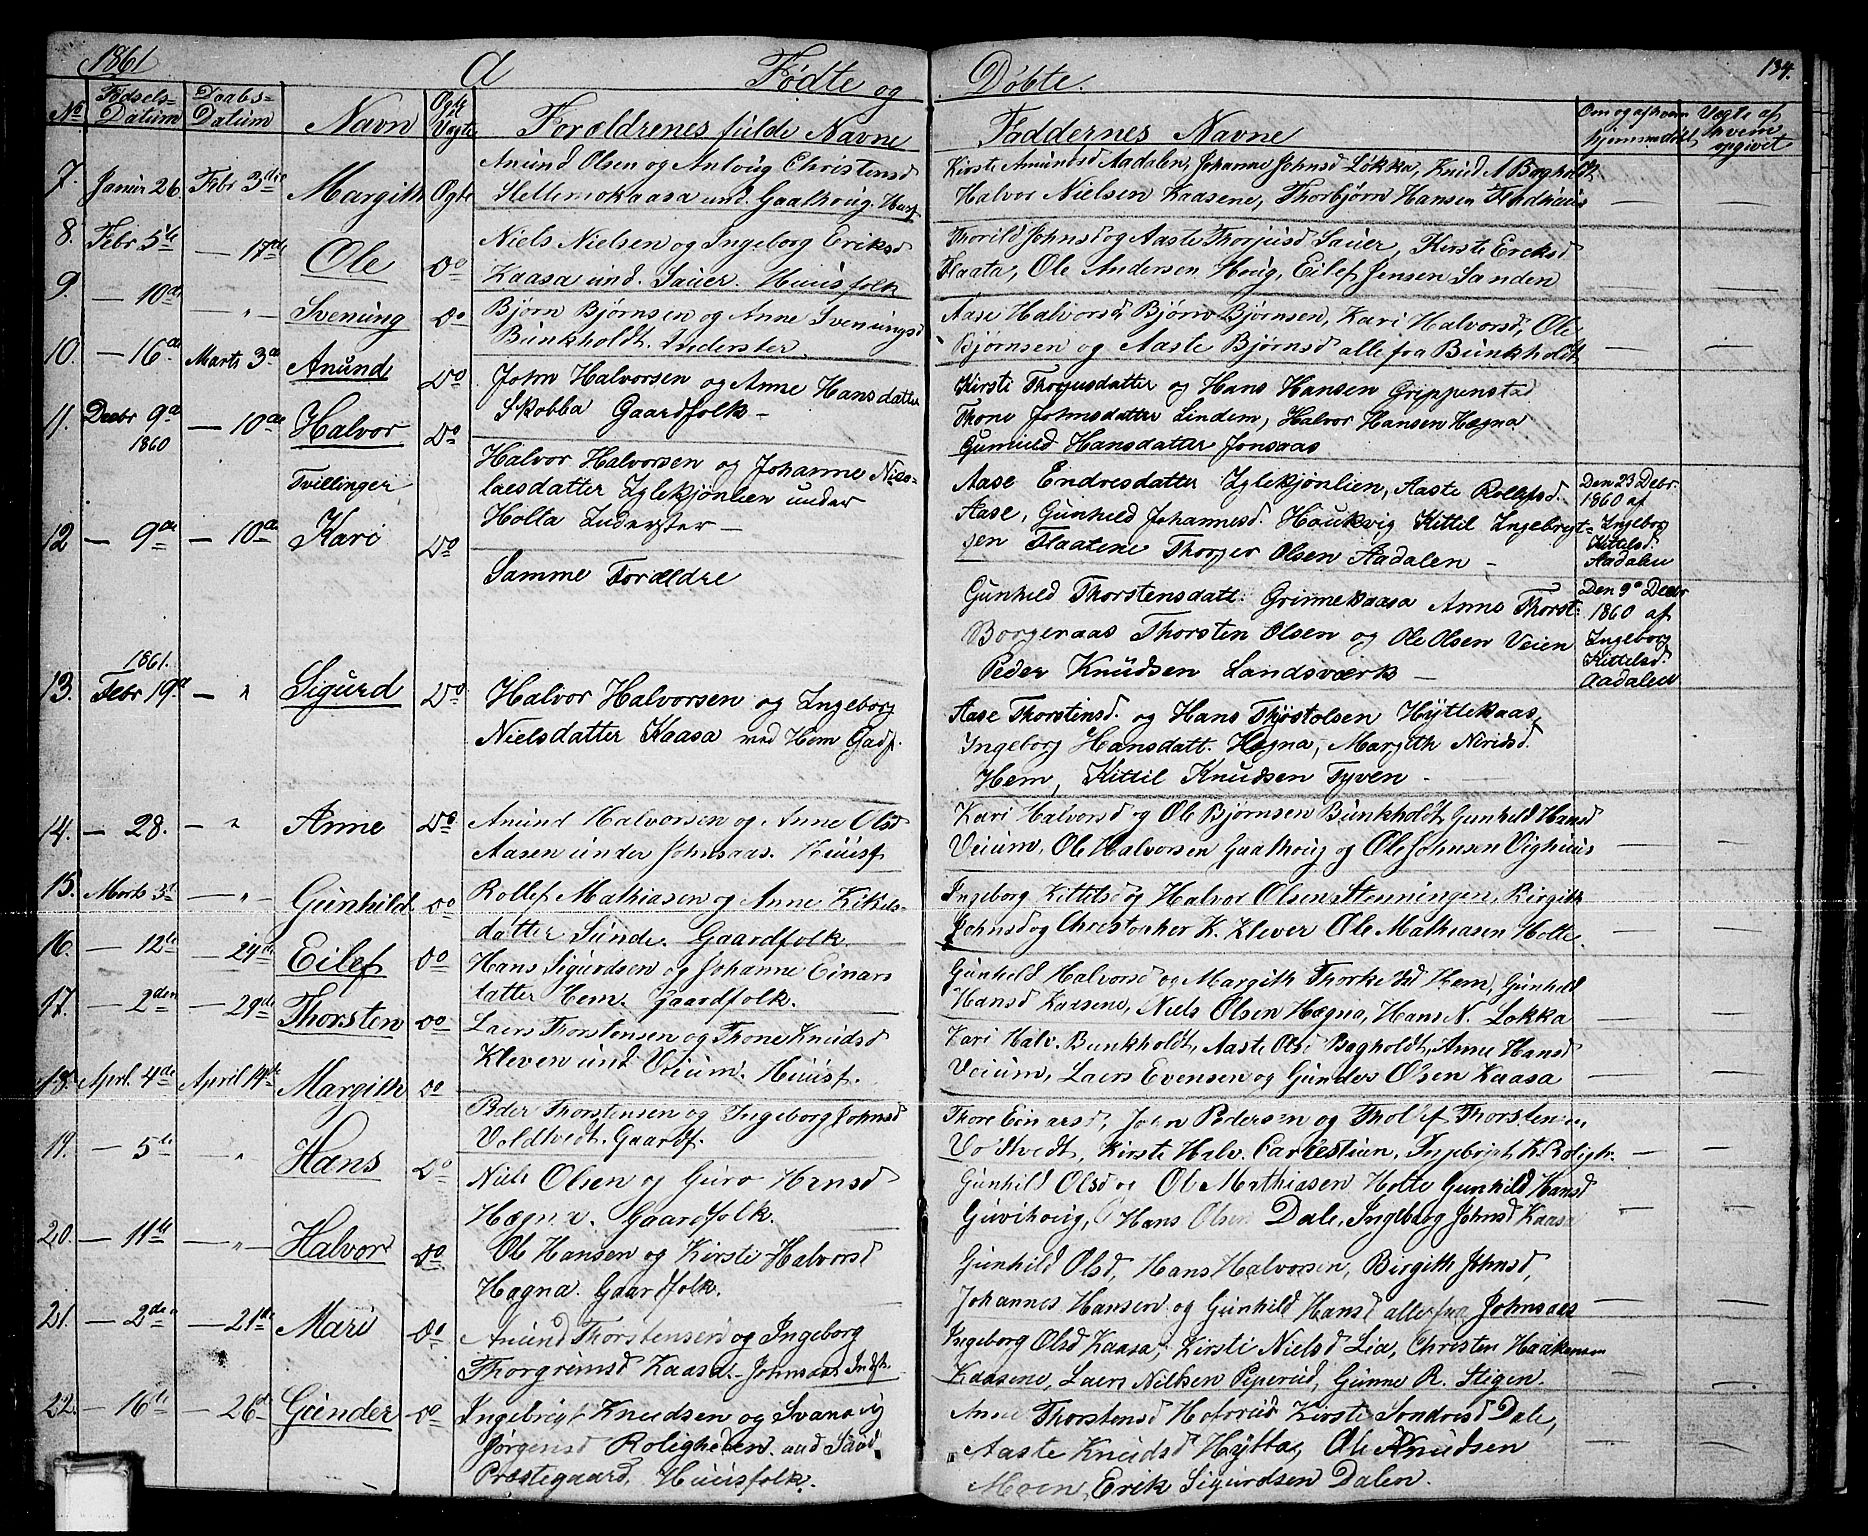 1861 A Fødte og Døbte. 134.
No Fødsels-Datum Daabs-Datum Navn Ægte Uægte Forældrenes fulde Navne Faddernes Navne Om og af hvem hjemmedøbt Uægte af hvem opgivet
7. Januar 26. Febr 3die Margith Ægte Anund Olsen og Anlaug Christensd
Hellemokaasa und. Gaalhoug. Husf
Kirste Amundsd Aadalen, Johanne Johnsd Løkka, Knud A Bagholdt
Halvor Nielsen Kaasene, Thorbjørn Hansen Tindhuus — —
8. Febr 5te — 17de Ole Do Niels Nielsen og Ingeborg Eriksd
Kaasa und. Sauer. Huusfolk
Thorild Johnsd og Aaste Thorjusd Sauer, Kirste Ericksd
Flaata, Ole Andersen Houg, Eilef Jensen Sanden — —
9. — 10de — " — Svenung Do Bjørn Bjørnsen og Anne Svenungsd
Bunkholdt. Inderster.
Aase Halvorsd, Bjørn Bjørnsen, Kari Halvorsd, Ole
Bjørnsen og Aaste Bjørnsd alle fra Bunkholdt — —
10. — 16de Marts 3de Anund Do John Halvorsen og Anne Hansdatter
Skobba Gaardfolk —
Kirsti Thorjusdatter og Hans Hansen Grippenstad
Thone Johnsdatter Lindem, Halvor Hansen Hægna
Gunuld Hansdatter Jonsaas
11. Decbr 9de 1860 — 10de Halvor Do Halvor Halvorsen og Johanne Nico-
laesdatter Iglekjønlien under
Holta Inderster —
Tvillinger
Aase Endresdatter Iglekjønlien, Aaste Rollefsd.
Aase, Gunhild Johannesd. Haukvig Kittil Ingebrigt-
sen Flaatene Thorger Olsen Aadalen —
Den 23 Debr.
1860 af
Ingeborg
Kittilsd.
Aadalen
12 — 9de — 10de Kari Do Samme Forældre
Gunhild Thorstensdatt. Grinnekaasa Anne Thorst-
Borgeraas Thorsten Olsen og Ole Olsen Veien
Peder Knudsen Landsværk —
Den 9de Decbr
1860 af
Ingeborg
Kittilsd.
Aadalen
1861.
13. Febr 19de — " Sigurd Do Halvor Halvorsen og Ingeborg
Nielsdatter Kaasa ved Hem Gadf.
Aase Thorstensd. og Hans Thjøstolsen Hyttekaas,
Ingeborg Hansdatt. Hægna, Margith Nirids.
Hem, Kittil Knudsen Tyven —
14. — 28. — " Anne Do Anund Halvorsen og Anne Olsd
Aasen under Johnsaas. Huusf
Kari Halvorsd og Ole Bjørnsen Bunkholdt, Gunhild Hansd
Veium, Ole Halvorsen Gaalhoug og Ole Johnsen Vighuus — —
15. Marts 3de — " — Gunhild Do Rollef Mathiasen og Anne Kittels-
datter Sunde. Gaardfolk
Ingeborg Kittelsd og Halvor Olsen Stenningen, Birgith
Johnsd og Christopher K. Klever Ole Mathiasen Holte. — —
16. — 12te — 24de Eilef Do Hans Sigurdsen og Johanne Einars
datter Hem. Gaardfolk.
Gunhild Halvorsd og Margith Thorkelsd Hem, Gunhild
Hansd Kaasene, Niels Olsen Hægna, Hans N. Løkka — —
17. — 2den — 29de Thorsten Do Laers Thorstensen og Thone Knudsd
Kleven und Veium. Huusf.
Kari Halv. Bunkholdt, Aaste Olsd Bagholdt, Anne Hansd
Veium, Laers Evensen og Gunder Olsen Kaasa — —
18. Aprl. 4de April 14de Margith Do Peder Thorstensen og Ingeborg Johnsd
Voldtvedt. Gaardf.
Thore Einarsd, John Pedersen og Thollef Thorstensen
Voldtvedt, Kirsti Halv. Carlestuen, Ingebrigt K. Roligh. — —
19. — 5te — " Hans Do Niels Olsen og Guro Hansd
Hægna. Gaardfolk.
Gunhild Olsd og Ole Mathiasen Holte Gunhild Hansd
Guvihoug, Hans Olsen Dale, Ingeborg Johnsd Kaasa — —
20. — 11te — " — Halvor Do Ole Hansen og Kirsti Halvorsd
Hægna. Gaardfolk.
Gunhild Olsd, Hans Halvorsen, Birgith Johnsd,
Johannes Hansen og Gunhild Hansd alle fra Johnsaas — —
21. — 2den — 21de Mari Do Anund Thorstensen og Ingeborg
Thorgrimsd Kaasa. Johnsaas Indst.
Ingeborg Olsd Kaasa, Kirsti Nielsd Lia, Christen Haakensen
Kaasene, Laers Nielsen Piperud, Gunne R. Stigen — —
22. — 16de — 26de Gunder Do Ingebrigt Knudsen og Svanaug
Jørgensd Rolighden. und Saud
Præstegaard. Huusfolk.
Anne Thorstensd Hoforud Kirsti Sondresd Dale,
Aaste Knudsd Hytta, Ole Knudsen
Moen, Erik Sigurdsen Dalen.